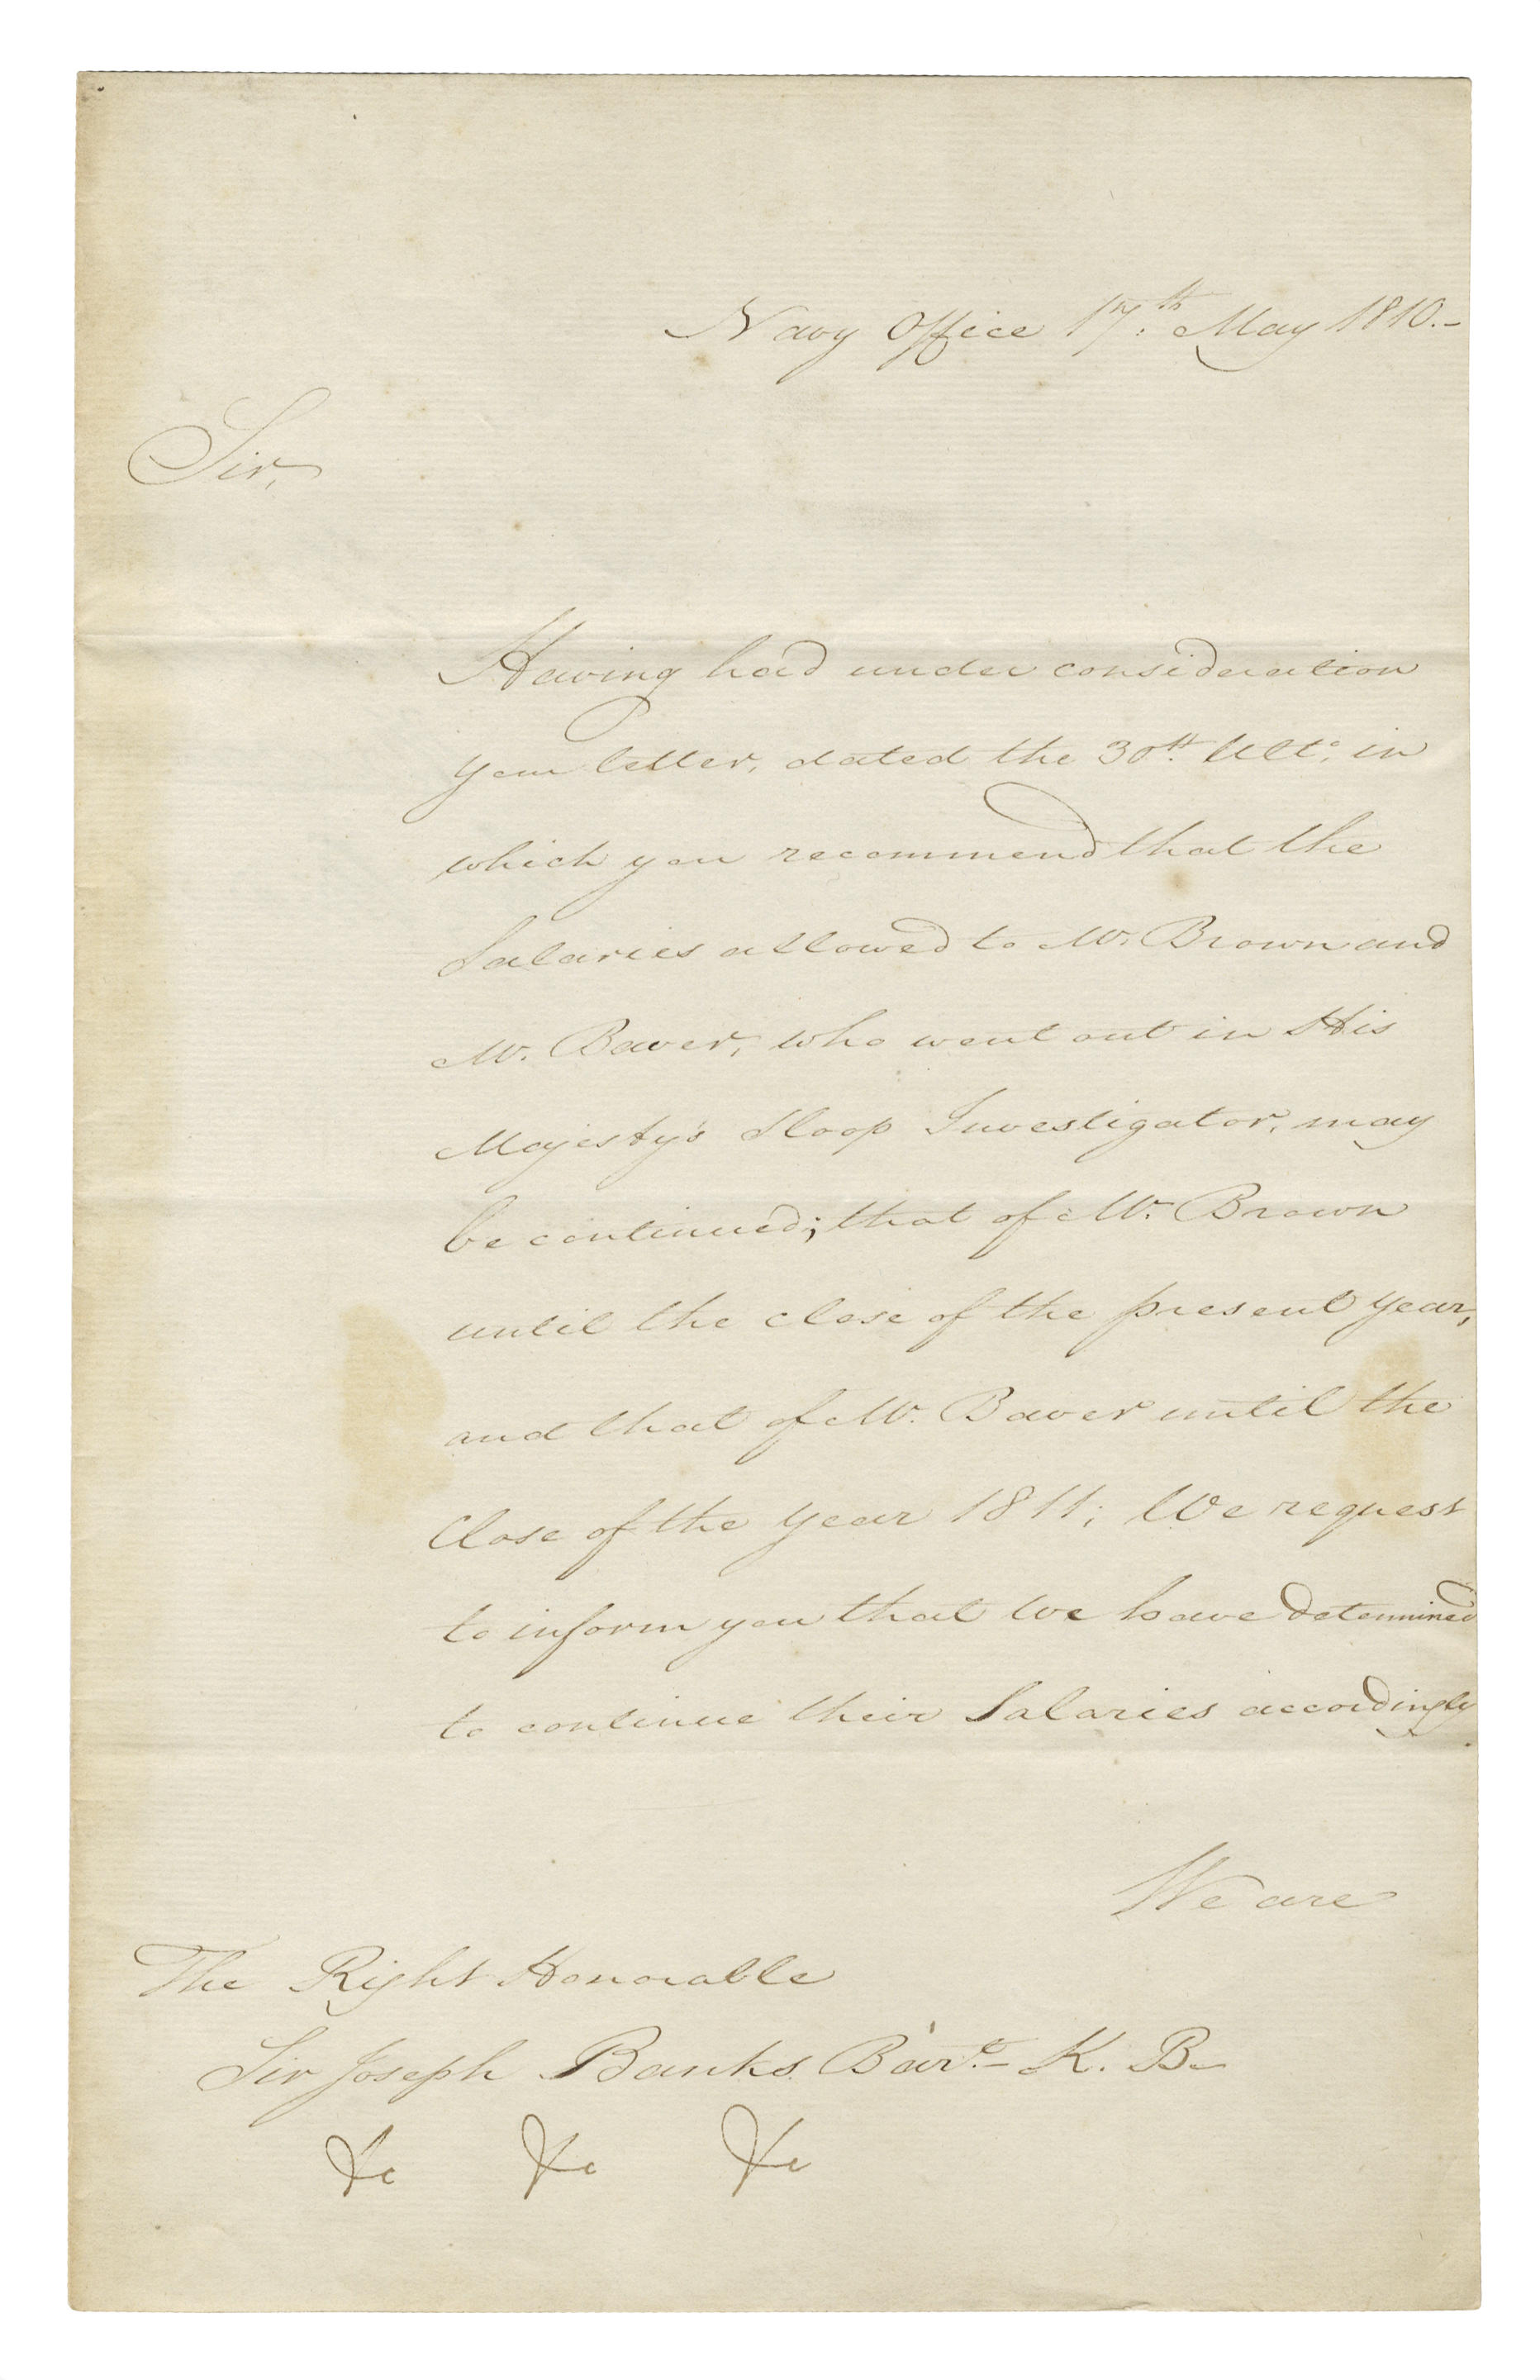 Navy Office 17.th May 1810.-
Sir,
Having had under consideration
your letter, dated the 30th. Ulto. in
which you recommend that the
Salaries allowed to Mr. Brown and
Mr. Bauer, who went out in His
Majesty's Sloop Investigator, may
be continued; that of Mr. Brown
until the close of the present year,
and that of Mr. Bauer until the
Close of the year 1811; We request
to inform you that we have determined
to continue their Salaries accordingly.
We are
The Right Honorable
Sir Joseph Banks Bart.- K. B.
&c &c &c